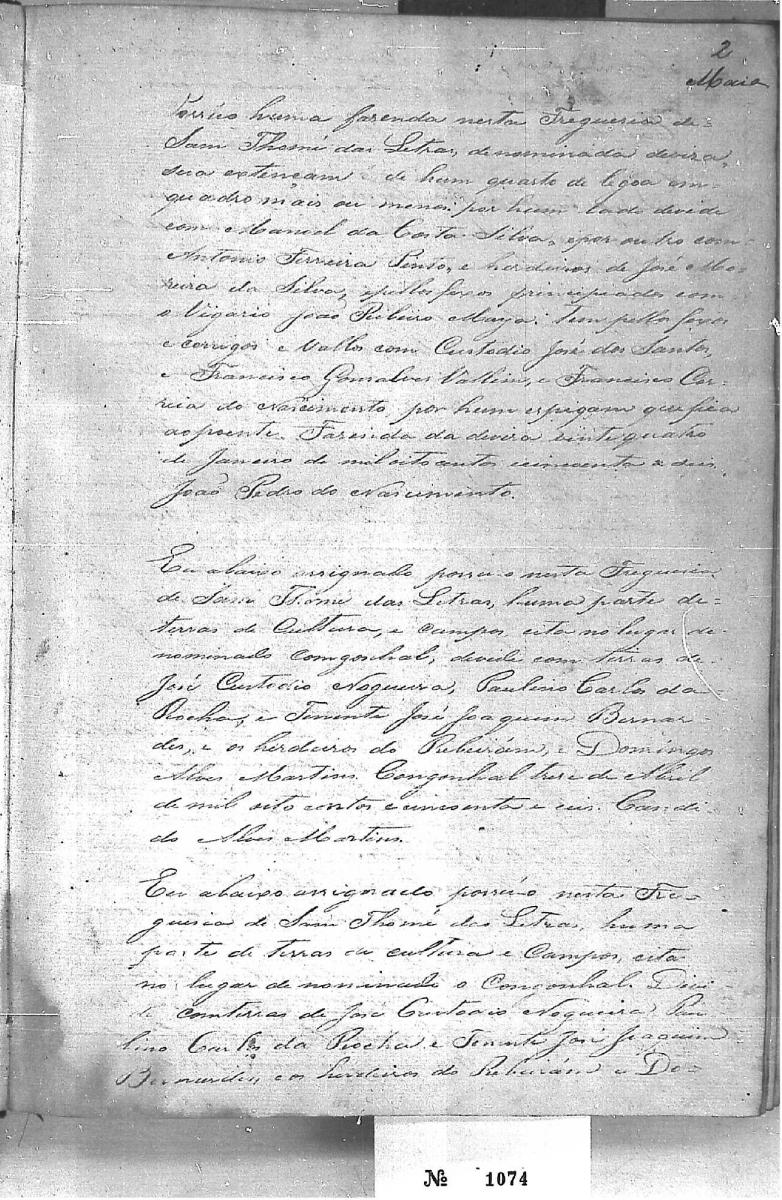 2
Maia
Possúo huma fazenda nesta Freguesia de-
Sam Thomé das Letras, denominada devira,
sua extencam é de hum quarto de legoa em-
quadro mais ou menos, por hum lado devide
com Manoel da Costa Silva, e por outro com-
Antonio Ferreira Pinto, e herdeiros de José Mo-
reira da Silva, e pellos foxos principiados com
o Vigario João Ribeiro Maya: tem pellos foxos
e corrigos e Vallos com Custodio José dos Santos,
e Francisco Gonsalves Vallim, e Francisco Cor-
reia do Nascimento por hum espegam que fica
ao poente. Fazenda da devira vinte quatro
de Janeiro de mil oito centos cincoenta e seis
João Pedro do Nascimento.
Eu abaixo assignado possuo nesta Freguesia
de Sam Thomé das Letras, huma parte de-
terras de Cultura, e campos, cita no lugar de-
nominado Comgonhal, devide com terras de-
José Custodio Nogueira, Paulino Carlos da
Rocha, e Tenente José Joaquim Bernar-
des, e os herdeiros do Ribeirám, e Domingos
Alves Martins. Congonhal trese de Abril
de mil oito centos e cincoenta e seis. Candi-
do Alves Martins.
Eu abaixo assignado possúo nesta Fre-
guesia de Sam Thomé das Letras, huma
parte de terras de cultura e Campos, cita
no lugar de nominado o Congonhal. Divi-
de com terras de José Custodio Nogueira Pau-
lino Carlos da Rocha e Tenente José Joaquim
Bernardes, e os herdeiros do Ribeirám e Do-
Nº 1074